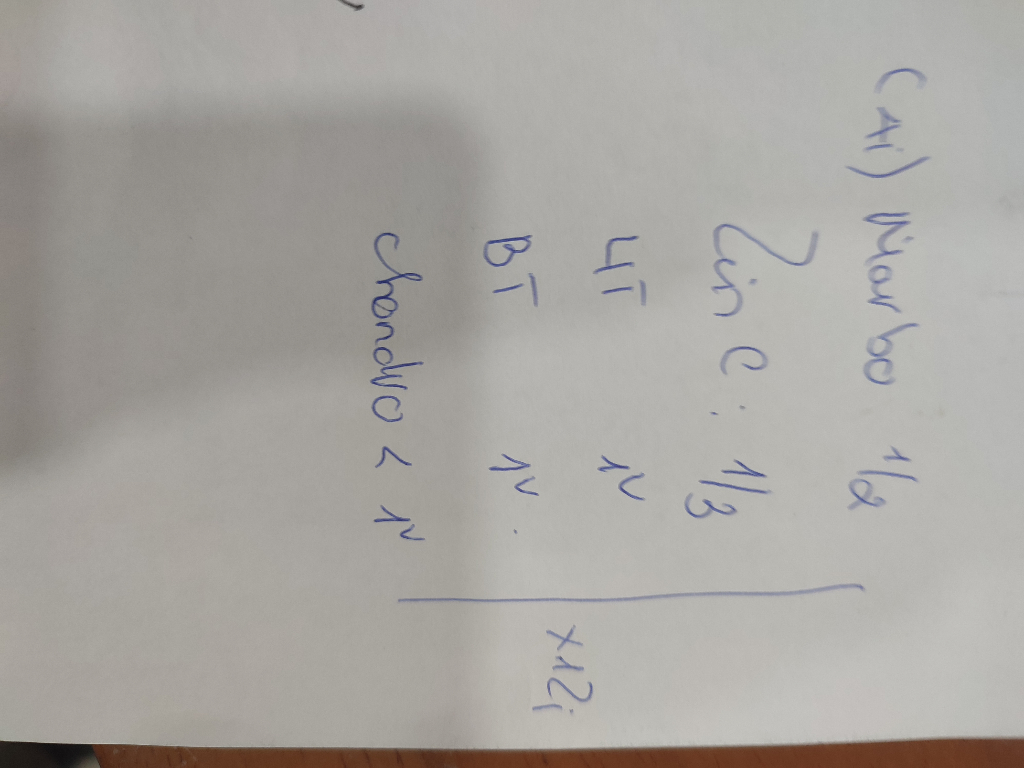 (1i) Marbo 1/2
Zin C : 1/3
LT 1v
BT 1v.
Chondro < 1v
x12i